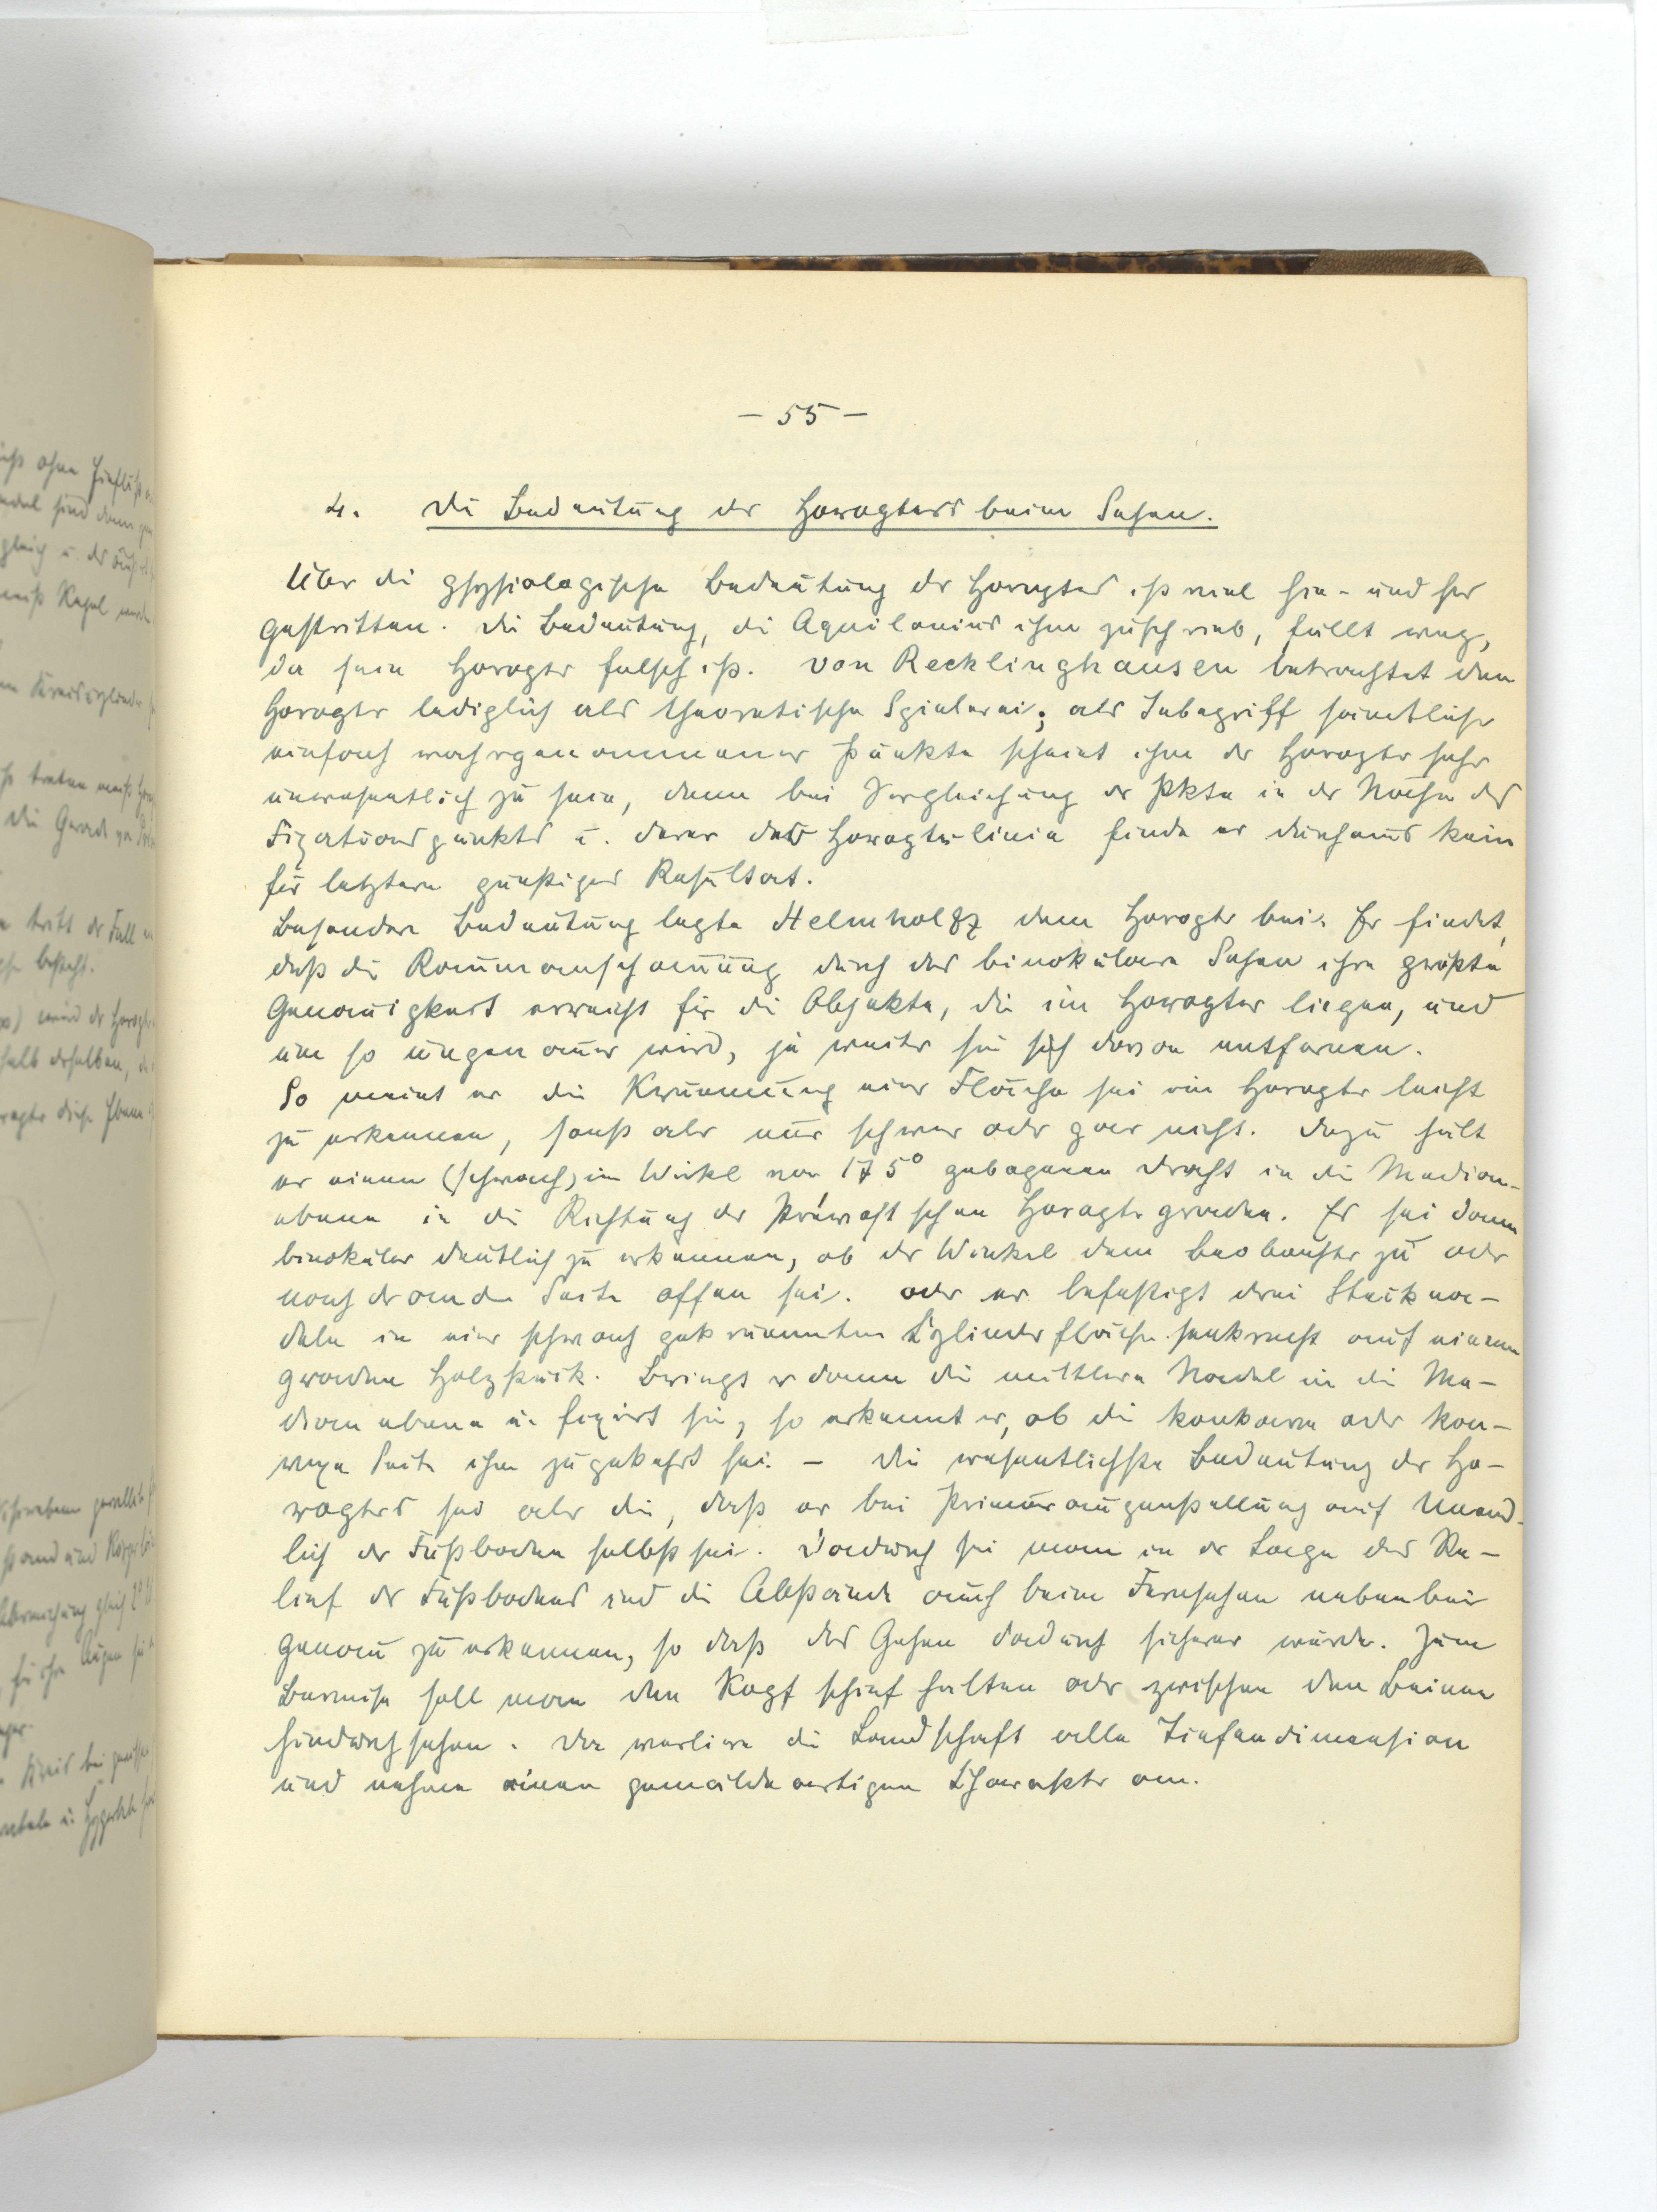 - 55 -
4. Die Bedeutung des Horopters beim Sehen.
Über die physiologische Bedeutung des Horopters ist viel hin- und her
gestritten. Die Bedeutung, die Aquilonius ihm zuschrieb, fällt weg,
da sein Horopter falsch ist. von Recklinghausen betrachtet den
Horopter lediglich als theoretische Spielerei; als Inbegriff sämtlicher
einfach wahrgenommener Punkte scheint ihm der Horopter sehr
unwesentlich zu sein, denn bei Vergleichung der Pkte in der Nähe des
Fixationspunktes u. derer der Horopterlinie finde er durchaus kein
für letztere günstiges Resultat.
Besondere Bedeutung legte Helmholtz dem Horopter bei. Er findet,
daß die Raumanschauung durch das binokulare Sehen ihre größte
Genauigkeit erreicht für die Objekte, die im Horopter liegen, und
um so ungenauer wird, je weiter sie sich davon entfernen.
So meint er die Krümmung einer Fläche sei im Horopter leicht
zu erkennen, sonst aber nur schwer oder gar nicht. Dazu hält
er einen (schwach) im Winkel von 175° gebogenen Draht in die Median-
ebene in die Richtung der Prévostschen Horoptergeraden. Es sei dann
binokular deutlich zu erkennen, ob der Winkel dem Beobachter zu oder
nach der andren Seite offen sei. Oder er befestigt drei Steckna-
deln in einer schwach gekrümmten Zylinderfläche senkrecht auf einem
geraden Holzstück. Bringt er dann die mittlere Nadel in die Me-
dianebene u. fixiert sie, so erkennt er, ob die konkave oder kon-
vexe Seite ihm zugekehrt sei. - Die wesentlichste Bedeutung des Ho-
ropters sei aber die, daß er bei Primäraugenstellung auf Unend-
lich der Fußboden selbst sei. Dadurch sei man in der Lage das Re-
lief des Fußbodens und die Abstände auch beim Fernsehen nebenbei
genau zu erkennen, so daß das Gehen dadurch sicherer würde. Zum
Beweise soll man den Kopf schief halten oder zwischen den Beinen
hindurchsehen. Da verliere die Landschaft alle Tiefendimension
und nehme einen gemäldeartigen Charakter an.